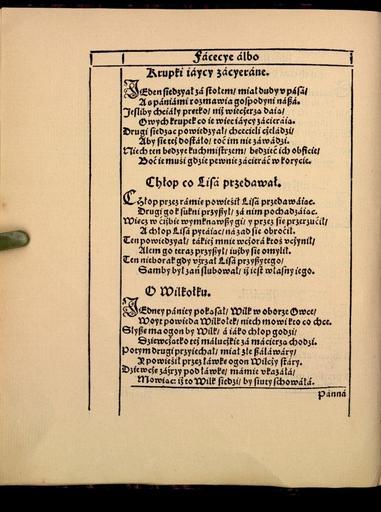 Fácecye álbo
Krupki iáycy zácyeráne.
JEden siedzyał zá stołem/ miał dudy v pásá/
A s pániámi rozmawia gospodyni nászá.
Jesliby chciáły prętko/ niż wieczerza dáią/
Owych krupek co ie wiec iáycy zácieráią.
Drugi siedząc powiedzyał/ chcecieli czeládzi/
Aby sie tej dostáło/ toć im nie záwádzi.
Niech ten bedzye kuchmistrzem/ bedzieć ich obficie/
Boć ie musi gdzie pewnie zácieráć w korycie.
Chłop co Lisá przedawał.
CHłop przez rámię powiesił Lisá przedawáiąc.
Drugi go k sukni przyszył/ zá nim pochadzáiąc.
Wiecz w ciżbie wymknąwszy gi/ y przez się przerzucił/
A chłop Lisá pytáiąc/ názad sie obrocił.
Ten powiedzyał/ tákiej mnie wczorá ktoś vczynił/
Alem go teraz przyszył/ iużby sie omylił.
Ten nieborak gdy vzrzał Lisá przyszytego/
Samby był zań slubował/ iż iest własny iego.
O Wilkołku.
JEdney pániey pokąsał/ Wilk w oborze Owce/
Woyt powieda Wilkołek/ niech mowi kto co chce.
Slysze ma ogon by Wilk/ á iáko chłop godzi/
Dziewczątko tej málucżkie zá máćierzą chodzi.
Potym drugi przyiechał/ miał złe száłáwáry/
A powiesił przez ławkę ogon Wilczy stáry.
Dziewczę záyrzy pod ławkę/ mámie vkazáłá/
Mowiąc: iż to Wilk siedzi/ by siuty schowáłá.
Pánná